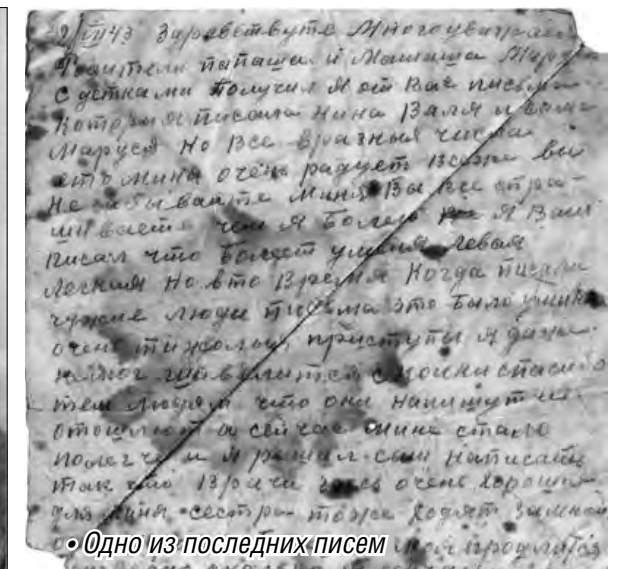 VII 43 Здравствуте Многоуваграе
папаша и Мамаша Маруся
с детками Получил Я от Вас письма
Которыя писала Нина Валя и сама
Маруся Но Все Вразныя числа
етъ Мины очень радует Всеже вы
Не забываите Миня Вы Все спра-
шиваете чем Я Болею Я Вам
писал что Болеет уминя левая
Легкая Но Вто Время Когда писали
чужие люди письма это Было умине
очень тижолыи приступы Я даже
немог шевелится скоики спасибо
тем людям что они напишут и
отошлют а сеичас мине стало
полегче и Я решил сам Написать
так что Врачи здесь очень хорошия
для мины сестры тоже ходят замной
• Одно из последних писем